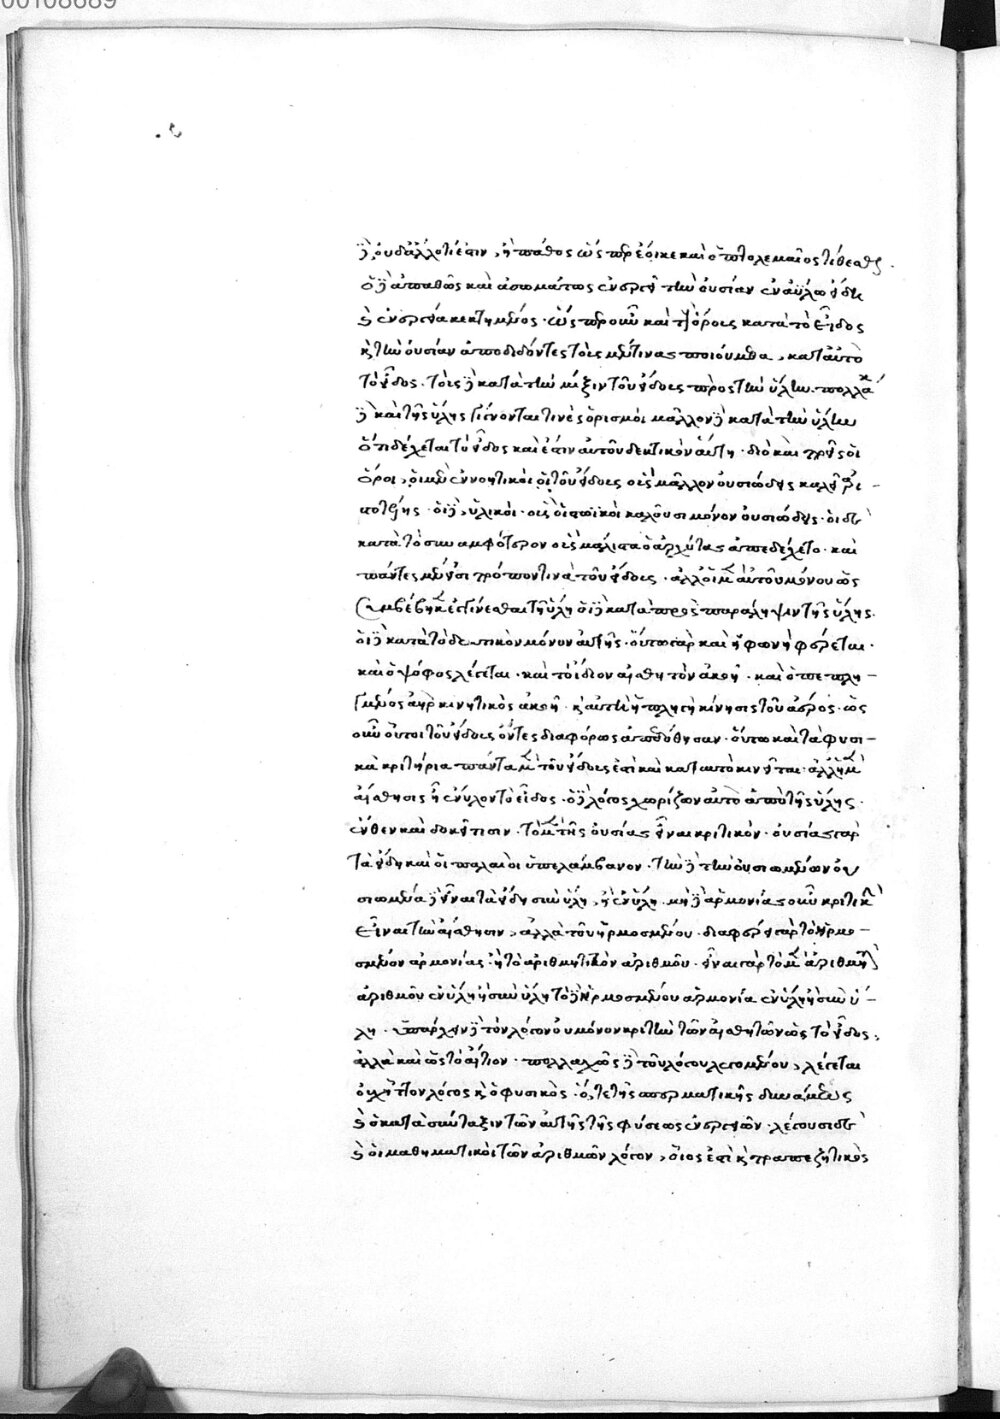 00108689
δὲ οὐδ' ἄλλό τί ἐστιν, ἢ πάθος ὥσπερ ἔοικε καὶ ὁ πτολεμαῖος τίθεσθαι.
ὁ δὲ ἀπαθῶς καὶ ἀσωμάτως ἐνεργεῖ τὴν οὐσίαν ἐν ἀΰλω εἴδει
καὶ ἐνεργεία κεκτημένος· ὥσπερ οὖν καὶ τοὺς ὅρους κατὰ τὸ εἶδος
καὶ τὴν οὐσίαν ἀποδιδόντες τοὺς μέν τινας ποιούμεθα, κατ' αὐτὸ
τὸ εἶδος· τοὺς δὲ κατὰ τὴν μίξιν τοῦ εἴδους πρὸς τὴν ὕλην. πολλάκ
δὲ καὶ τῆς ὕλης γίγνονταί τινες ὁρισμοὶ μᾶλλον δὲ κατὰ τὴν ὕλην
ὅτι δέχεται τὸ εἶδος καὶ ἐστιν αὐτοῦ δεκτικὸν αὕτη· διὸ καὶ τρεῖς οἱ
ὅροι, οἱ μὲν ἐννοητικοὶ οἱ τοῦ εἴδους οὓς μᾶλλον οὐσιώδεις καλεῖ ἀρι-
στοτέλης· οἱ δὲ, ὑλικοὶ· οὓς οἱ στωϊκοὶ καλοῦσι μόνον οὐσιώδεις· οἱ δὲ
κατὰ τὸ συναμφότερον οὓς μάλιστα ὁ ἀρχύτας ἀπεδέχετο· καὶ
πάντες μὲν εἰσὶ τρόπον τινὰ τοῦ εἴδους· ἀλλ' οἱ μὲν αὐτοῦ μόνου ὡς
συμβέβηκεν ἐγγίνεσθαι τῆ ὕλη οἱ δὲ κατὰ προσπαράληψιν τῆς ὕλης.
οἱ δὲ κατὰ τὸ δεκτικὸν μόνον αὐτῆς· οὕτω γὰρ καὶ ἡ φωνὴ φέρεται·
καὶ ὁ ψόφος λέγεται· καὶ τὸ ἴδιον αἰσθητὸν ἀκοῆ· καὶ ὁ πεπλη-
γμένος ἀὴρ κινητικὸς ἀκοῆ· καὶ αὐτὴ ἡ πληγὴ κίνησις τοῦ ἀέρος· ὡς
οὖν οὗτοι τοῦ εἴδους ὄντες διαφόρως ἀπεδόθησαν· οὕτω καὶ τὰ φυσι-
κὰ κριτήρια πάντα μὲν τοῦ εἴδους ἐστὶ καὶ κατ' αὐτὸ κινεῖται· ἀλλ' ἡ μὲν
αἴσθησις ἦ ἔνυλον τὸ εἶδος· ὁ δὲ λόγος χωρίζων αὐτὸ ἀπὸ τῆς ὕλης.
ἔνθεν καὶ δοκεῖ τισιν· τὸ μὲν τῆς οὐσίας εἶναι κριτικὸν· οὐσίας γὰρ
τὰ εἴδη καὶ οἱ παλαιοὶ ὑπελάμβανον· τὴν δὲ τὴν οὐσιωμένων οὐ
σιωμένα δὲ εἶναι τὰ εἴδη σὺν ὕλη, ἢ ἐν ὕλη. μὴ δὲ ἁρμονίας οὖν κριτικὴν
εἶναι τὴν αἴσθησιν, ἀλλὰ τοῦ ἡρμοσμένου. διαφέρει γὰρ τὸ ἡρμο-
σμένον ἁρμονίας· ἢ τὸ ἀριθμητικὸν ἀριθμοῦ· εἶναι γὰρ τὸ μὲν ἀριθμητὸν
ἀριθμὸν ἐν ὕλη ἢ σὺν ὕλη τὸ δὲ ἡρμοσμένου ἁρμονία ἐν ὕλη ἢ σὺν ὕ-
λη. ὑπάρχειν δὲ τὸν λόγον οὐ μόνον κριτὴν τῶν αἰσθητῶν ὡς τὸ εἶδος,
ἀλλὰ καὶ ὡς τὸ αἴτιον· πολλαχῶς δὲ τοῦ λόγου λεγομένου, λέγεται
οὐχ ἧττον λόγος καὶ ὁ φυσικὸς· ὅ, τε τῆς σπερματικῆς δυνάμεως
καὶ ὁ κατὰ σύνταξιν τῶν αὐτῆς τῆς φύσεως ἐνεργειῶν· λέγουσι δὲ
καὶ οἱ μαθηματικοὶ τῶν ἀριθμῶν λόγον, οἷος ἐστὶ καὶ τραπεζητικὸς